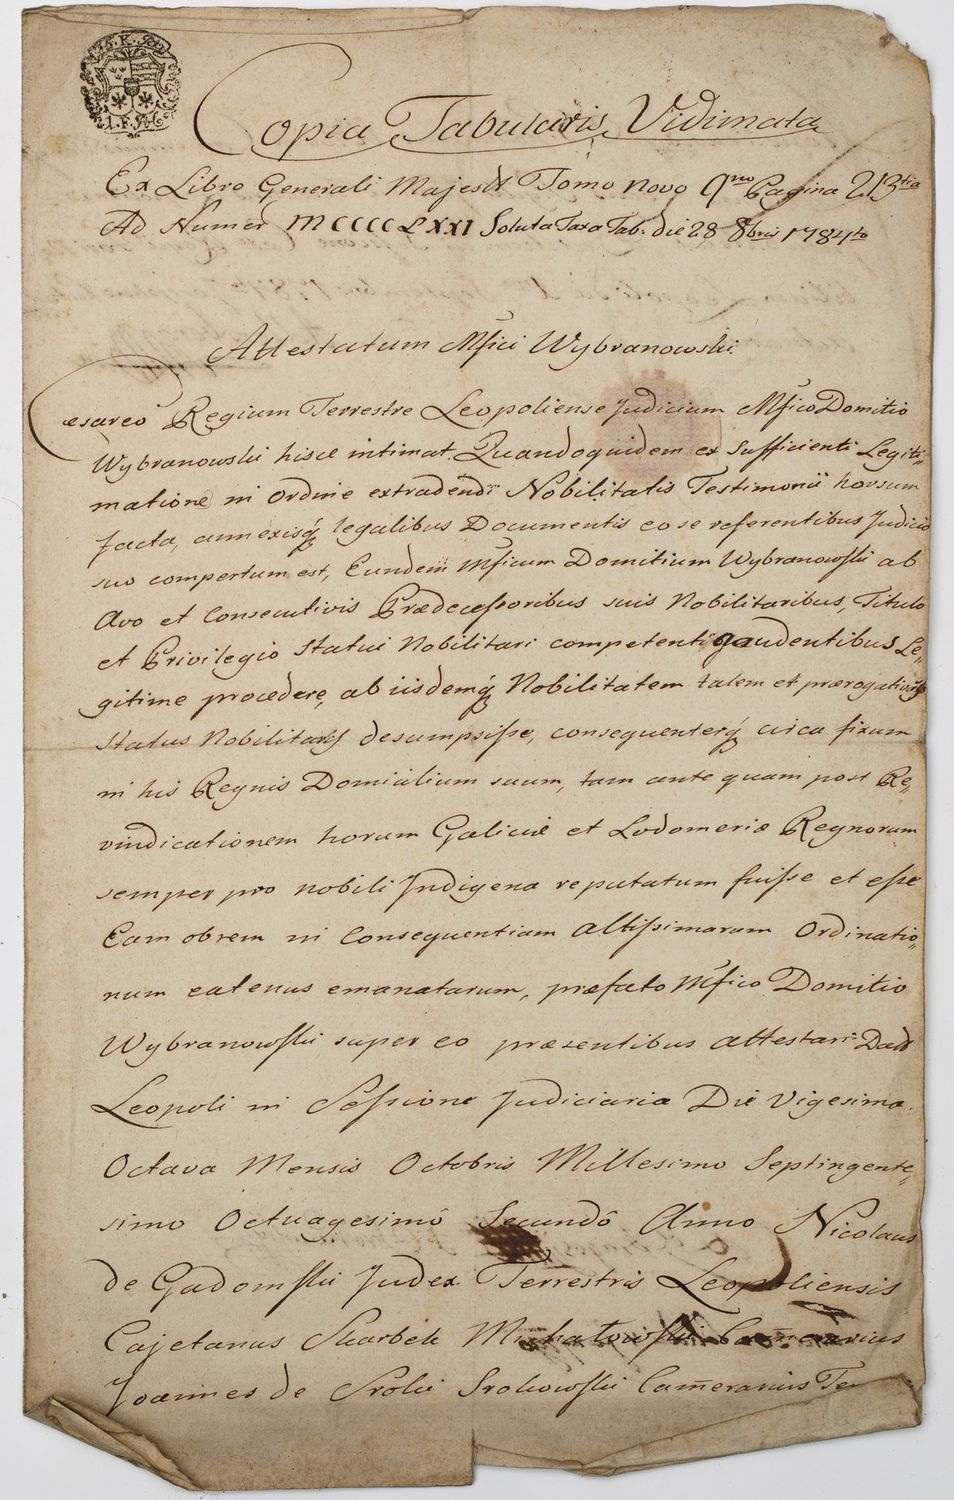 15. K.
I. F.
Copia Tabularis Vidimata
Ex Libro Generali Majest Tomo novo 9no Pagina 213tia
Ad Numer MCCCCLXXI Soluta Taxa Tab. die 28 8bris 1784to
Attestatum Mfici Wybranowski.
Cæsareo Regium Terrestre Leopoliense Judicium Mfico Domitio
Wybranowski hisce intimat. Quandoquidem ex sufficienti Legiti=
matione in ordine extradendi Nobilitatis Testimonii horsum
facta, annexisq́ legalibus Documentis eo se referentibus Judicio
suo compertum est, Eundem Mficum Domitium Wybranowski ab
Avo et Consecutivis Prædecessoribus suis Nobilitaribus, Titulo
et Privilegio Statui Nobilitari competenti gaudentibus Le=
gitime procedere, ab iisdemq́ Nobilitatem talem et prærogativas
Status Nobilitaris desumpsisse, consequenterq́ circa fixum
in his Regnis Domicilium suum, tam ante quam post Re=
vindicationem horum Galiciæ et Lodomeriæ Regnorum
semper pro nobili Indigena reputatum fuisse et esse
Eam obrem in Consequentiam Altissimarum Ordinatio=
num eatenus emanatarum, præfato Mfico Domitio
Wybranowski super eo præsentibus attestari Datt
Leopoli in Sessione Judiciaria Die Vigesima
Octava Mensis Octobris Millesimo Septingente=
simo Octuagesimô Secundô Anno Nicolaus
de Gadomski Judex Terrestris Leopoliensis
Cajetanus Skarbek Michałowski Camerarius
Joannes de Sroki Srokowski Cam̄erarius Te